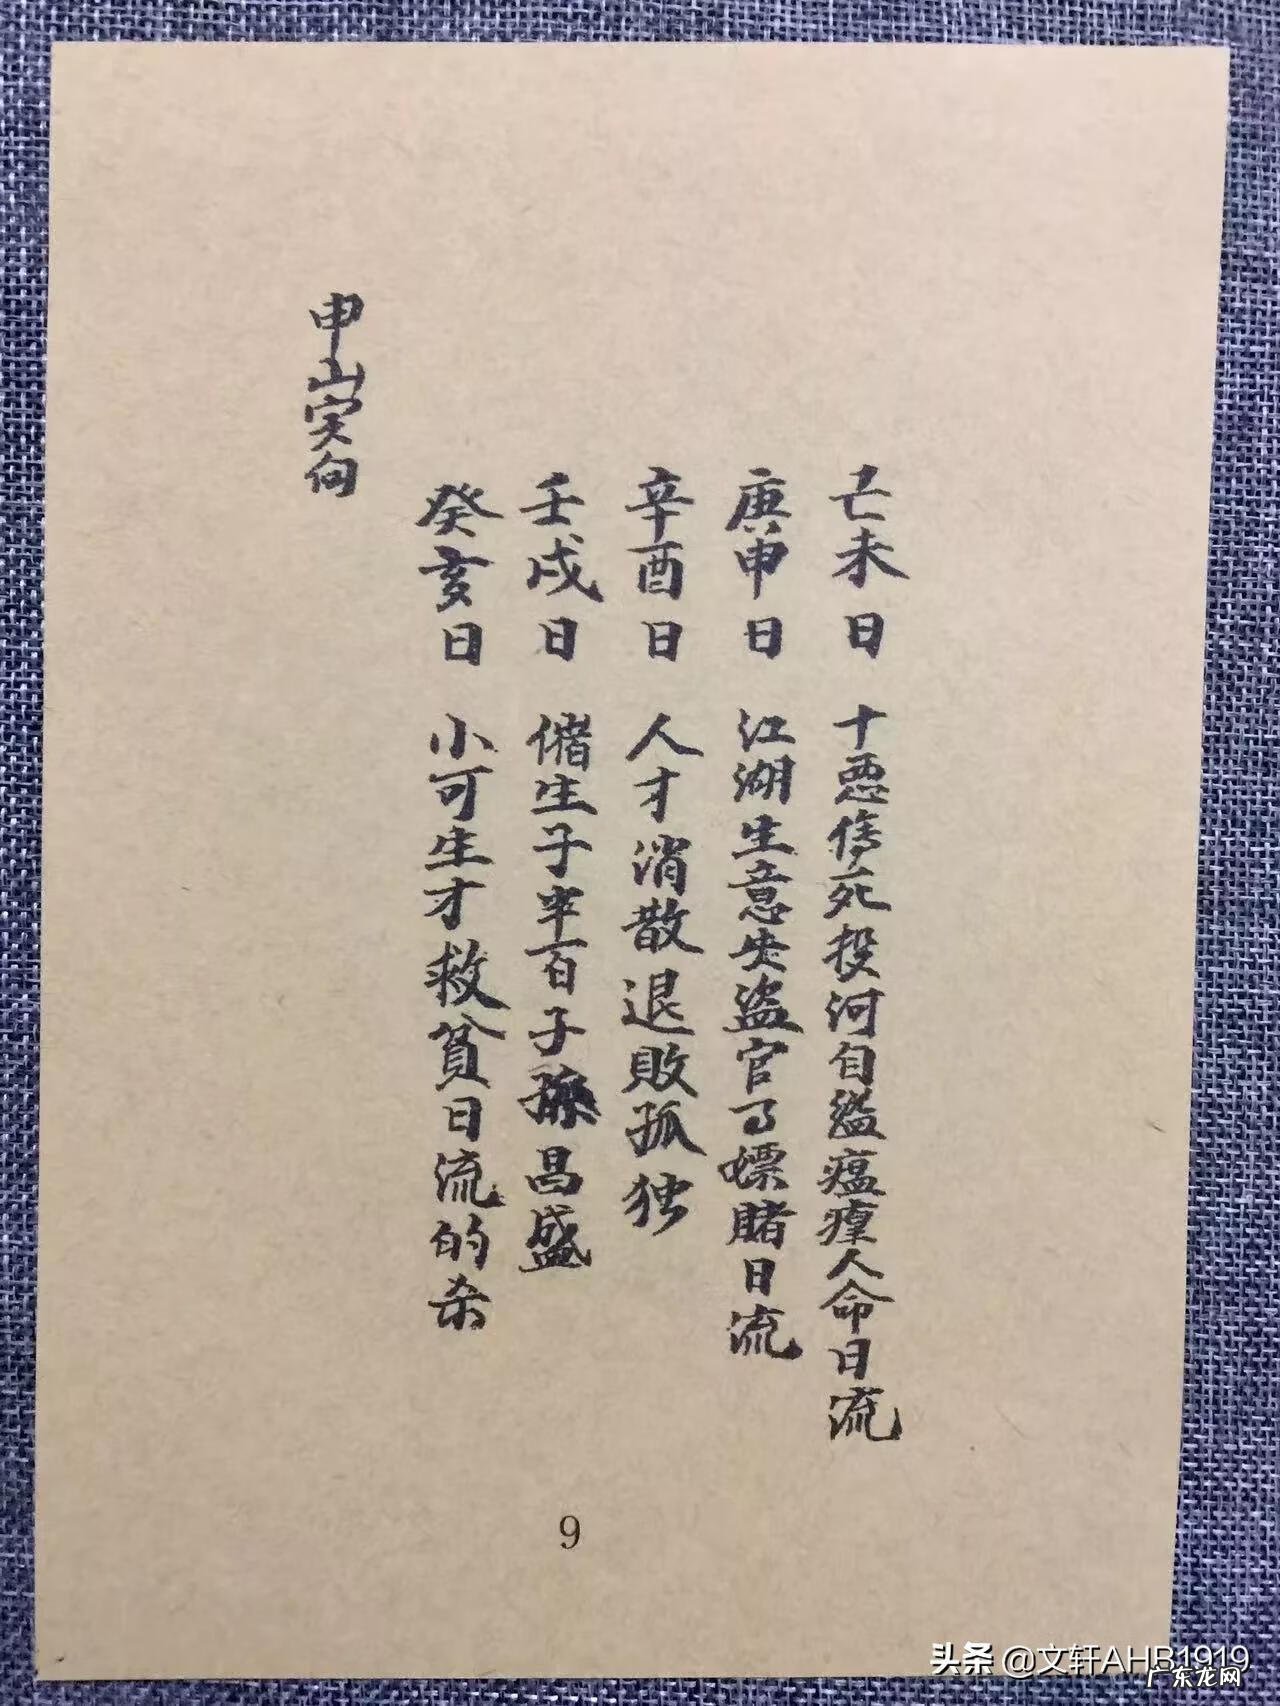 己未日 十恶傷死投河自縊瘟㾮人命日流
庚申日 江湖生意失盗官司嫖賭日流
辛酉日 人才消散退敗孤独
壬戌日 生子牢百子孫昌盛
癸亥日 小可生才救貧日流的杀
申山寅向
9
头条 @文轩AHB1919
广东龙网